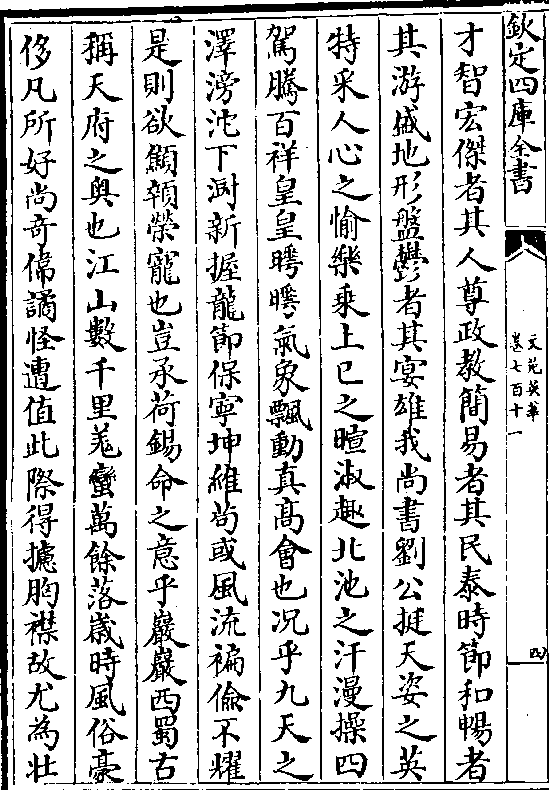 欽定四庫全書
文苑英華
卷七百十一
四
才智宏傑者其人尊政教簡易者其民泰時節和暢者
其游盛地形盤鬱者其宴雄我尚書劉公挺天姿之英
特采人心之愉樂乘上巳之暄淑趣北池之汗漫操四
駕騰百祥皇皇暭暭氣象飄動真髙會也况乎九天之
澤滂沱下澍新握龍節保寧坤維茍或風流褊儉不耀
是則欲顯顇榮寵也豈承荷錫命之意乎巖巖西蜀古
稱天府之奥也江山數千里羗蠻萬餘落歳時風俗豪
侈凡所好尚竒偉譎怪遭值此際得攄胸襟故尤為壮